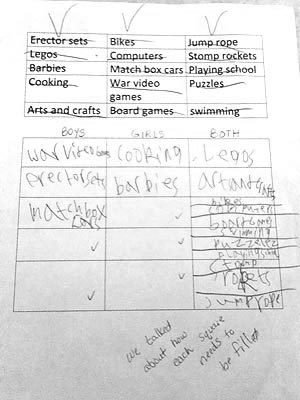 Erector sets Bikes Jump rope
Legos Computers Stomp rockets
Barbies Match box cars Playing school
Cooking War video games Puzzles
Arts and crafts Board games swimming
BOYS GIRLS BOTH
war video cooking Legos
erector sets barbies art and
matchbox cars bikes
computers
board games
swimming
puzzelez
playing
stomp
rokets
Jump rope
we talked
about how
each square
needs to
be filled